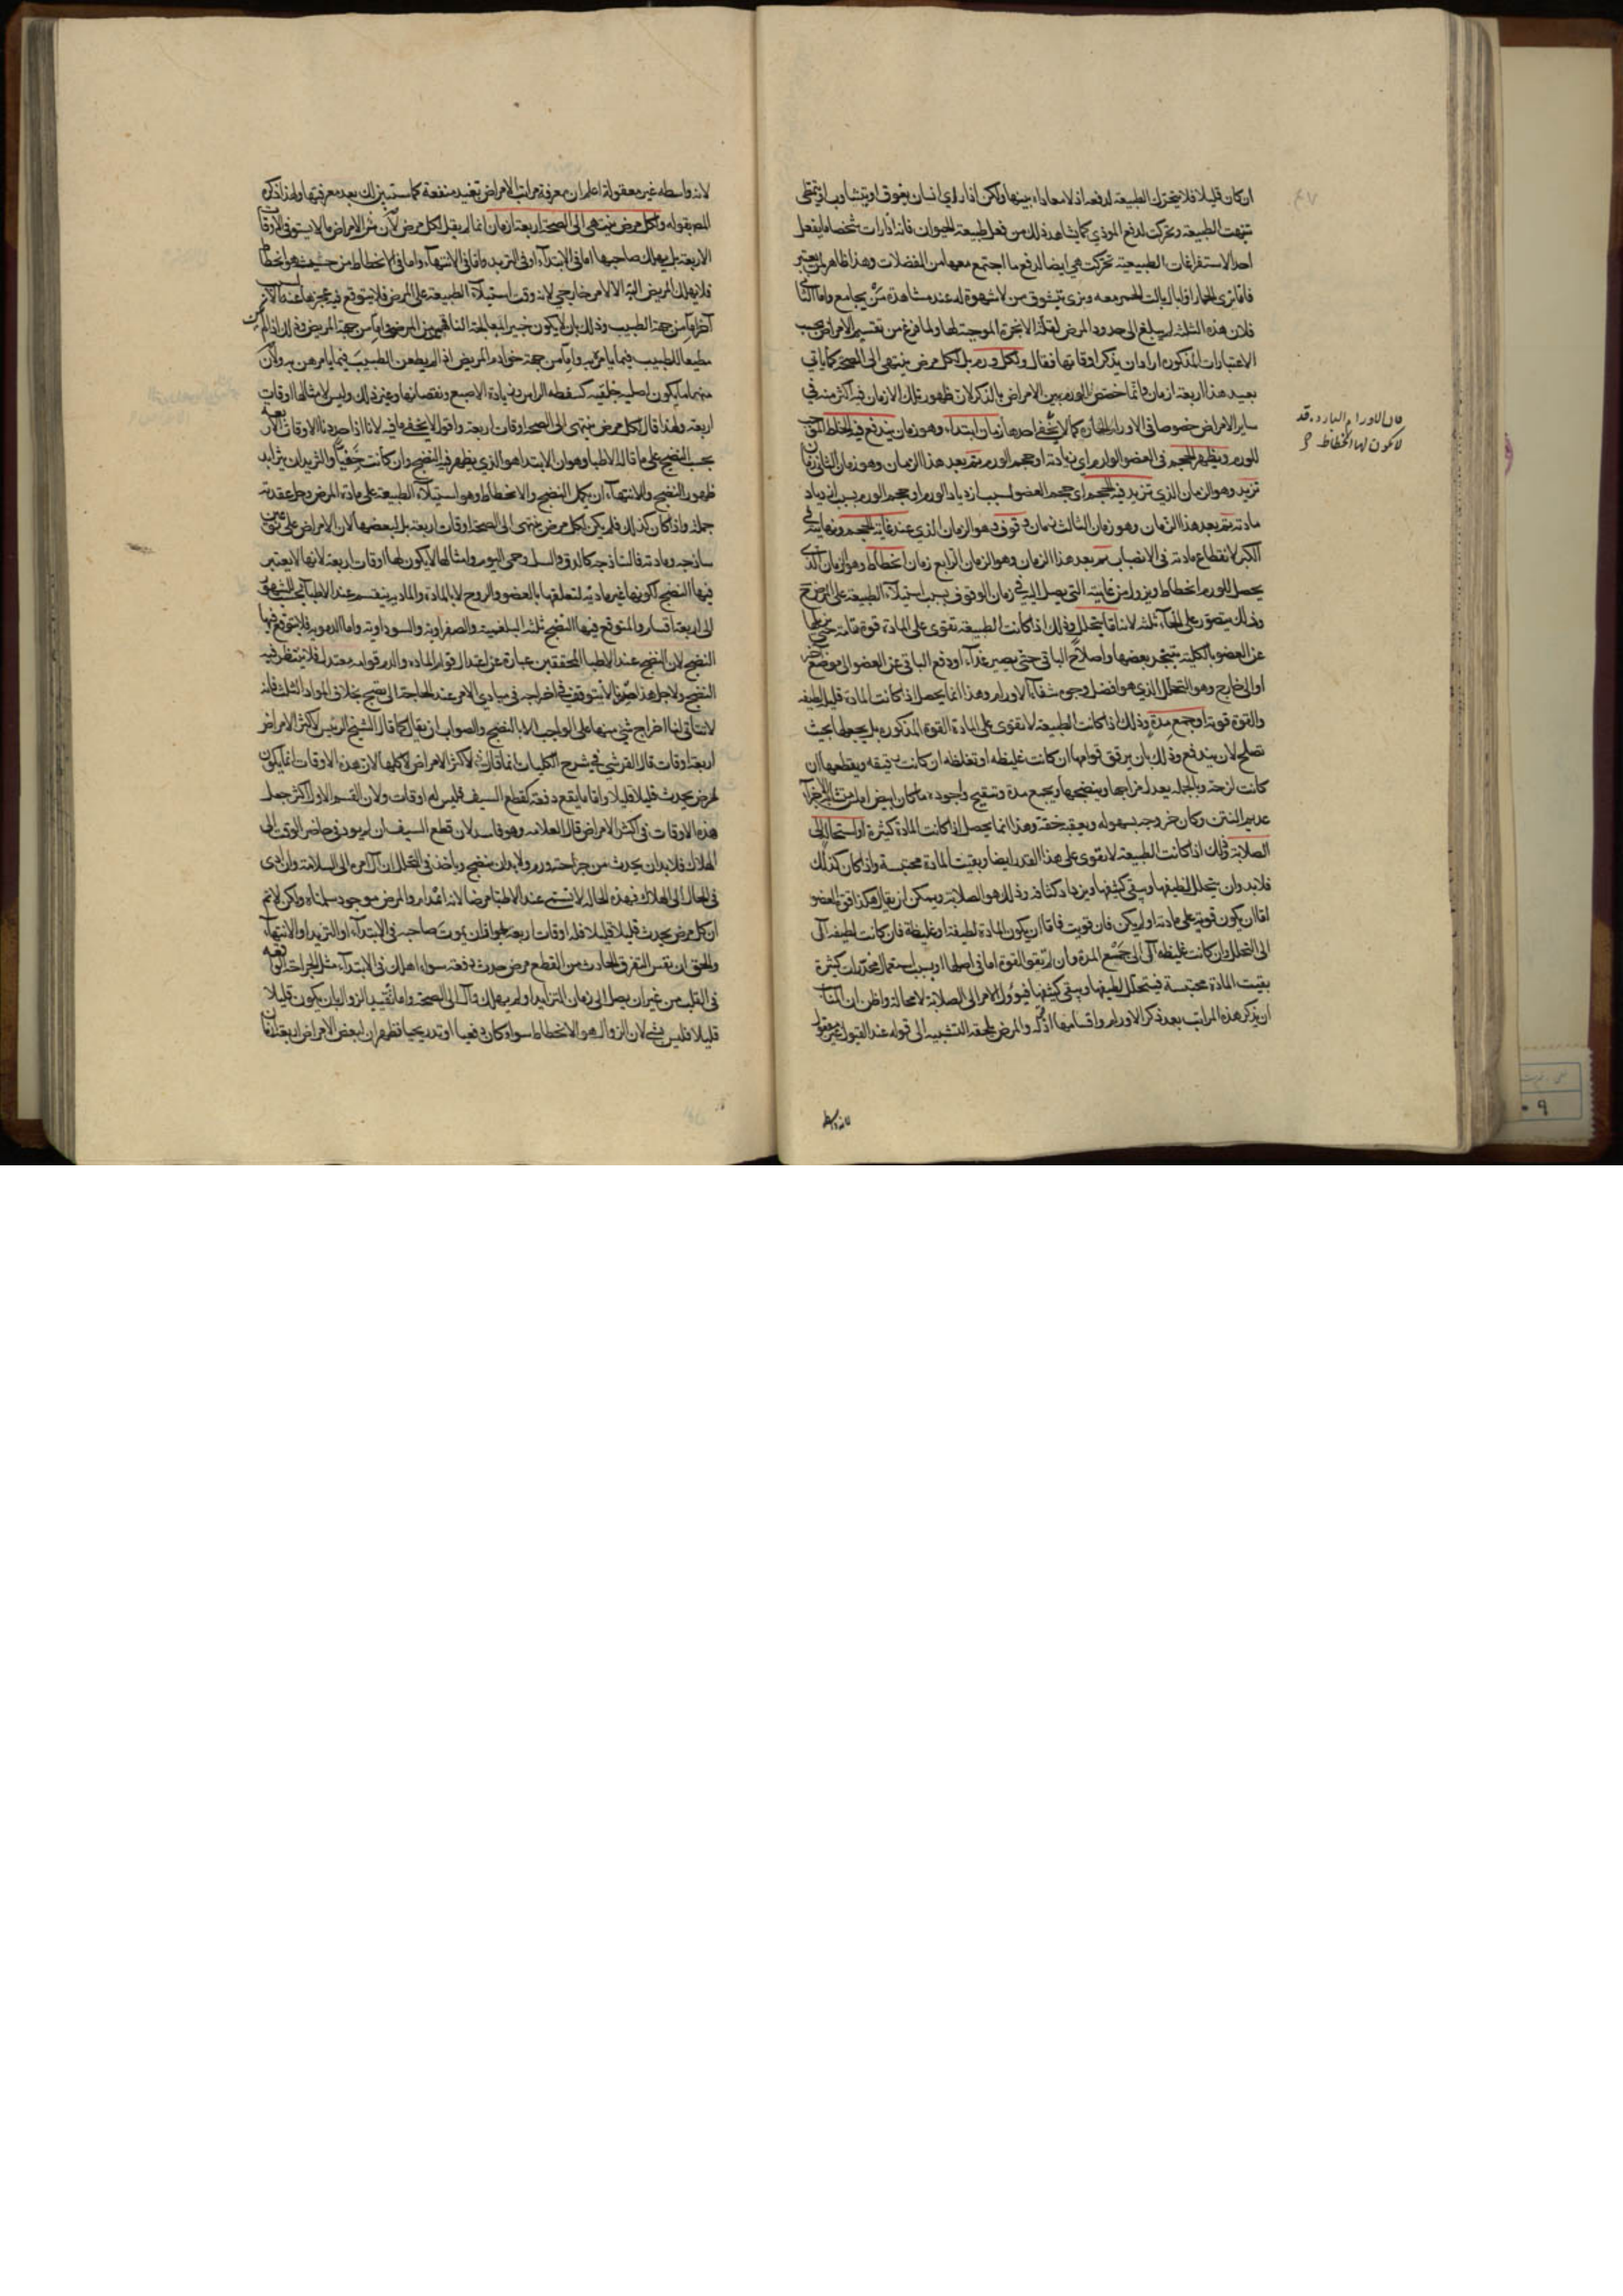 ان كان قليلا فلا يتحرك الطبيعة لدفعه اذ لا معاداة بينها ولكن اذا رأي انسان يفوق او يتثاوب او يتمطى
تنبهت الطبيعة وتحركت لدفع الموذي كما يشاهد ذلك من فعل طبيعة الحيوان فانه اذا رات شخصا ما يفعل
احد الاستفراغات الطبيعية تحركت هي ايضا لدفع ما اجتمع معها من الفضلات وهذا ظاهر لمن يعتبر
فانا نرى الحمار اذا بال بالت الحمر معه ونرى يتشوق من لا شهوة له عند مشاهدة من يجامع واما الثاني
فلان هذه الثلثة لم يبلغ الى حدود المرض لقلة الابخرة الموجبة لها ولما فرغ من تقسيم الامراض بحسب
الاعتبارات المذكورة اراد ان يذكر اوقاتها فقال ولكل ورم بل لكل مرض ينتهي الى الصحة كما ياتي
بعيد هذا اربعة ازمان وانما اختص الورم من بين الامراض بالذكر لان ظهور تلك الازمان فيه اكثر منه في
ساير الامراض خصوصا في الاورام الحارة كما لا يخفى احدها زمان ابتداء وهو زمان يندفع فيه الخلط الموجب
للورم ويظهر الحجم في العضو الوارم اي زيادته او حجم الورم ثم بعد هذا الزمان وهو زمان الثاني زمان
تزيد وهو الزمان الذي تزيد فيه الحجم اي حجم العضو لسبب ازدياد الورم او حجم الورم بسبب ازدياد
مادته ثم بعد هذا الزمان وهو زمان الثالث زمان وقوف وهو الزمان الذي عند غاية الحجم ونهايته في
الكبر لانقطاع مادته في الانصباب ثم بعد هذا الزمان وهو الزمان الرابع زمان انحطاط وهو الزمان الذي
يحصل للورم انحطاط ويزول من غايته التي يصل اليه في زمان الوقوف بسبب استيلاء الطبيعة على المرض
وذلك يتصور على انحاء ثلثة لانه اما يتحلل وذلك اذا كانت الطبيعة تقوى على المادة قوة تامة حتى يزيلها
عن العضو بالكلية بتبخير بعضها واصلاح الباقي حتى يصير غذاء او دفع الباقي عن العضو الى موضع اخر
او الى خارج وهو التحلل الذي هو افضل وجوه شفاء الاورام وهذا انما يحصل اذا كانت المادة قليلة لطيفه
والقوة قوية او يجمع مدة وذلك اذا كانت الطبيعة لا تقوى على المادة القوة المذكورة بل يجعلها بحيث
تصلح لان يندفع وذلك بان يرقق قوامها ان كانت غليظه او تغلظه ان كانت رقيقه ويقطعها ان
كانت لزجة وبالجملة يعدل مزاجها وينضجها ويجمع مدة وتنقيح واجوده ما كان ابيض املس متشابه الاجزاء
عديم النتن وكان خروجه بسهوله ويعقبه خفة وهذا انما يحصل اذا كانت المادة كثيرة او استحال الى
الصلابة وذلك اذا كانت الطبيعة لا تقوى على هذا القدر ايضا وبقيت المادة محتبسة واذا كان كذلك
فلا بد وان يتحلل لطيفها ويبقى كثيفها ويزداد كثافة وذلك هو الصلابة ويمكن ان يقال هكذا قوة العضو
اما ان يكون قوية على مادته او لم يكن فان قويت فاما ان يكون المادة لطيفة او غليظة فان كانت لطيفه آل
الى التحلل وان كانت غليظه آل الى جمع المدة وان لم تقو القوة اما في اصلها او بسبب استعمال مخدرات كثيرة
بقيت المادة محتبسة فيتحلل لطيفها ويبقى كثيفها فيؤول الامر الى الصلابة لا محالة واظن ان المناسب
ان يذكر هذه المراتب بعد ذكر الاورام واقسامها اذ قوله والمرض يلحقه التشبيه الى قوله عند القبول غير معقول
لانه واسطه
قال الاورام البارده قد
لا يكون لها انحطاط
لانه واسطه غير معقوله اعلم ان معرفة مراتب الامراض تفيد منفعة كما ستبين لك بعد معرفتها ولهذا ذكره
المص بقوله ولكل مرض ينتهي الى الصحة اربعة ازمان انما لم يقل لكل مرض لان من الامراض ما لا يستوفي الاوقات
الاربعة بل يهلك صاحبها اما في الابتداء او في التزيد واما في الانتهاء واما في الانحطاط من حيث هو انحطاط
فلا يهلك المريض البتة الا لامر خارجي لانه وقت استيلاء الطبيعة على المرض فلا يتوقع فيه عجزها عنه
مطيعا للطبيب فيما يأمر به واما من جهة خوادم المريض اذا لم يطعن الطبيب فيما يامرهن به ولان
منها ما يكون اصلية خلقيه كسفطه الراس وزيادة الاصبع ونقصانها وغير ذلك وليس لامثالها اوقات
اربعة ولهذا قال لكل مرض ينتهى الى الصحة اوقات اربعة واقول لا يخفى ما فيه لانا اذا حددنا الاوقات الاربعة
بحسب النضج على ما قاله الاطبا وهو ان الابتدا هو الذي يظهر فيه النضج وان كانت خفيا والتزيد ان يتزايد
ظهور النضج والانتهاء ان يكمل النضج والانحطاط وهو استيلاء الطبيعة على مادة المرض وحل عقدته
جملة واذا كان كذلك فلم يكن لكل مرض ينتهى الى الصحة اوقات اربعة بل لبعضها لان الامراض على نوعين
ساذجه ومادته فالساذجة كالدق والسل وحمى اليوم وامثالها لا يكون لها اوقات اربعة لانها لا يعتبر
فيها النضج لكونها غير مادية لتعلقها بالعضو والروح لا بالمادة والمادية ينقسم عند الاطبا
الى اربعة اقسام والمتوقع فيها النضج ثلثه البلغمية والصفراوية والسوداوية واما الدمويه فلا يتوقع فيها
النضج لان النضج عند الاطبا المحققين عبارة عن اعتدال قوام المادة والدم قوامه معتدل فلا ينتظر فيه
النضج ولاجل هذا لا يتوقف في اخراجه في مبادي الامر عند الحاجة الى نضج بخلاف المواد الثلث فانه
لا يتاتى لنا اخراج شئ منها على الواجب الا بالنضج والصواب ان يقال كما قال الشيخ الرئيس لاكثر الامراض
اربعة اوقات قال القرشي في شرح الكليات انما قال لاكثر الامراض لا كلها لان هذه الاوقات انما يكون
لمرض يحدث قليلا قليلا واما ما يقع دفعة كقطع السيف فليس له اوقات ولان القسم الاول اكثر جعل
هذه الاوقات في اكثر الامراض قال العلامة وهو فاسد لان قطع السيف ان لم يود في حاضر الوقت الى
الهلاك فلا بد ان يحدث من جراحته ورم ولا بد ان ينضج وياخذ في التحلل ان آل امره الى السلامة وان ادى
في الحال الى الهلاك فهذه الحالة لا تسمى عند الاطبا مرضا لانه والمرض موجود سلمناه ولكن لا نم
ان كل مرض يحدث قليلا قليلا فله اوقات اربعة لجواز ان يموت صاحبه في الابتداء او التزيد او الانتهاء
والحق ان نفس التفرق الحادث من القطع مرض حدث دفعة سواء اهلك في الابتداء مثل الجراحة الواقعه
في القلب من غير ان يصل الى زمان التزايد او لم يهلك وآل الى الصحة واما تقييد الزوال بان يكون قليلا
قليلا فليس بشئ لان الزوال هو الانحطاط سواء كان دفعيا او تدريجيا فظهر ان لبعض الامراض اربعة اوقات